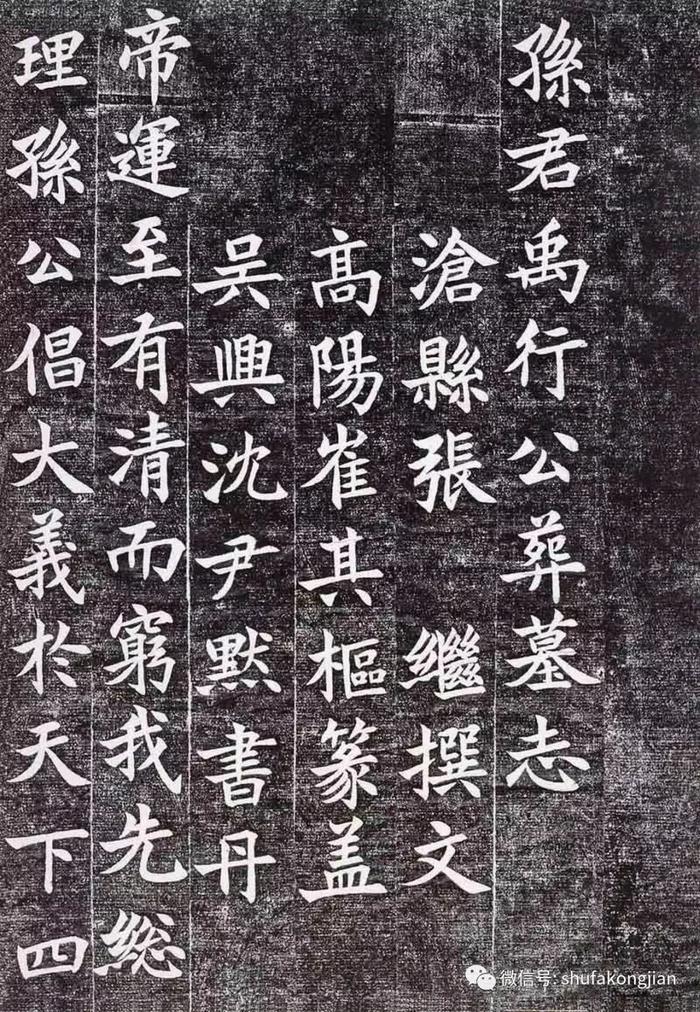 孫君禹行公葬墓志
滄縣張繼撰文
高陽崔其樞篆盖
吴興沈尹默書丹
帝運至有清而窮我先総
理孫公倡大義於天下四
微信号: shufakongjian